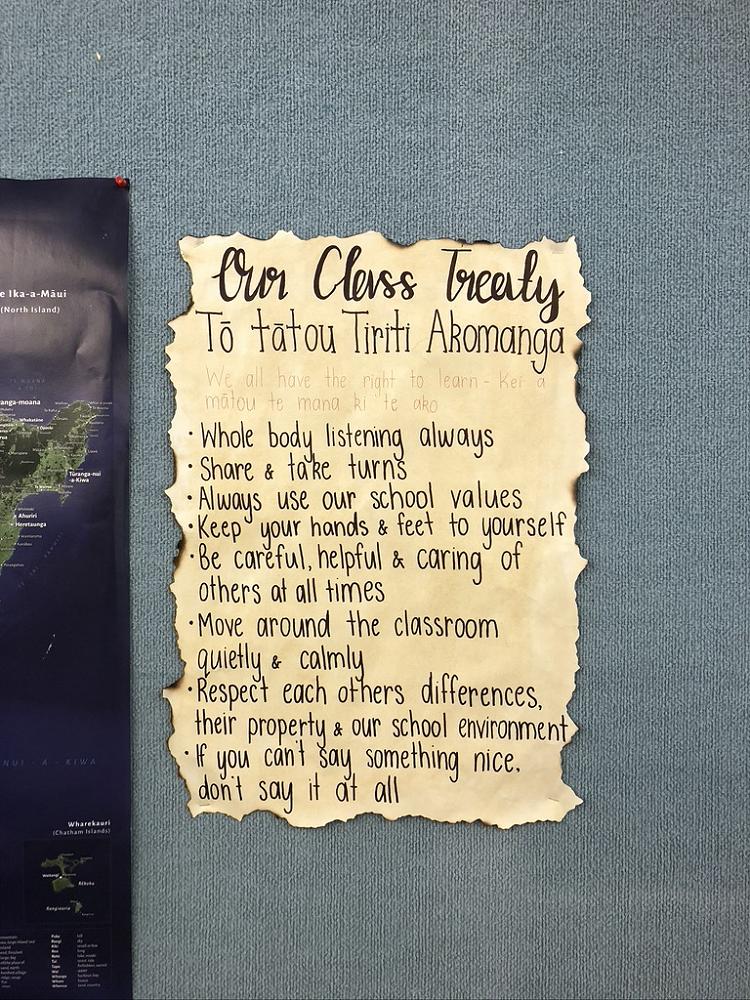 e Ika-a-Māui
(North Island)
anga-moana
Whakatāne
Tūranga-nui
-a-Kiwa
Ahuriri
Heretaunga
NUI - A - KIWA
Wharekauri
(Chatham Islands)
Waitangi
Rēkohu
Rangiauria
Our Class Treaty
Tō tātou Tiriti Akomanga
We all have the right to learn - Kei a
mātou te mana ki te ako
· Whole body listening always
· Share & take turns
· Always use our school values
· Keep your hands & feet to yourself
· Be careful, helpful & caring of
others at all times
· Move around the classroom
quietly & calmly
· Respect each others differences,
their property & our school environment
· If you can't say something nice,
don't say it at all